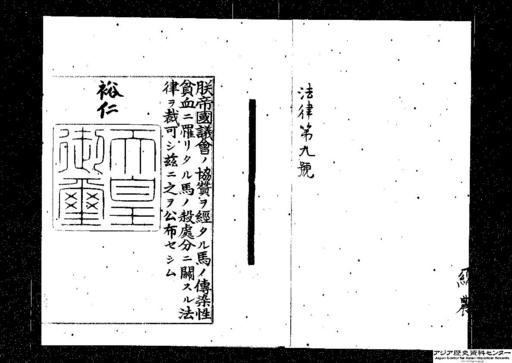 法律第九號
朕帝國議會ノ協贊ヲ經タル馬ノ傳染性
貧血ニ罹リタル馬ノ殺處分ニ關スル法
律ヲ裁可シ茲ニ之ヲ公布セシム
裕仁
天皇
御璽
アジア歴史資料センター
Japan Center for Asian Historical Records